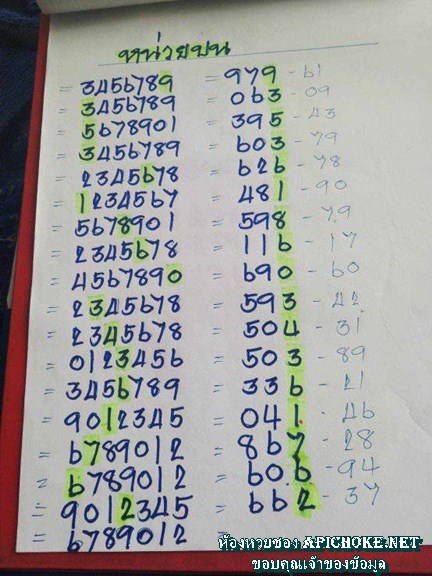 หน่วยบน
= 3456789 = 979 - 61
= 3456789 = 063 - 09
= 5678901 = 395 - 43
= 3456789 = 603 - 79
= 2345678 = 626 - 78
= 1234567 = 481 - 90
= 5678901 = 598 - 79
= 2345678 = 116 - 17
= 4567890 = 690 - 60
= 2345678 = 593 - 42
= 2345678 = 504 - 31
= 0123456 = 503 - 89
= 3456789 = 336 - 21
= 9012345 = 041 - 46
= 6789012 = 867 - 28
= 6789012 = 606 - 94
= 9012345 = 662 - 37
= 6789012 =
APICHOKE.NET
ขอบคุณเจ้าของข้อมูล